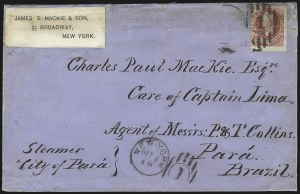 JAMES S. MACKIE & SON,
BROADWAY,
NEW YORK.
Charles Paul MacKie. Esqre
Care of Captain Lima.
Agent of Messrs: P&T Collins.
Steamer
"City of Pará"
Pará.
Brazil.
NEW YORK